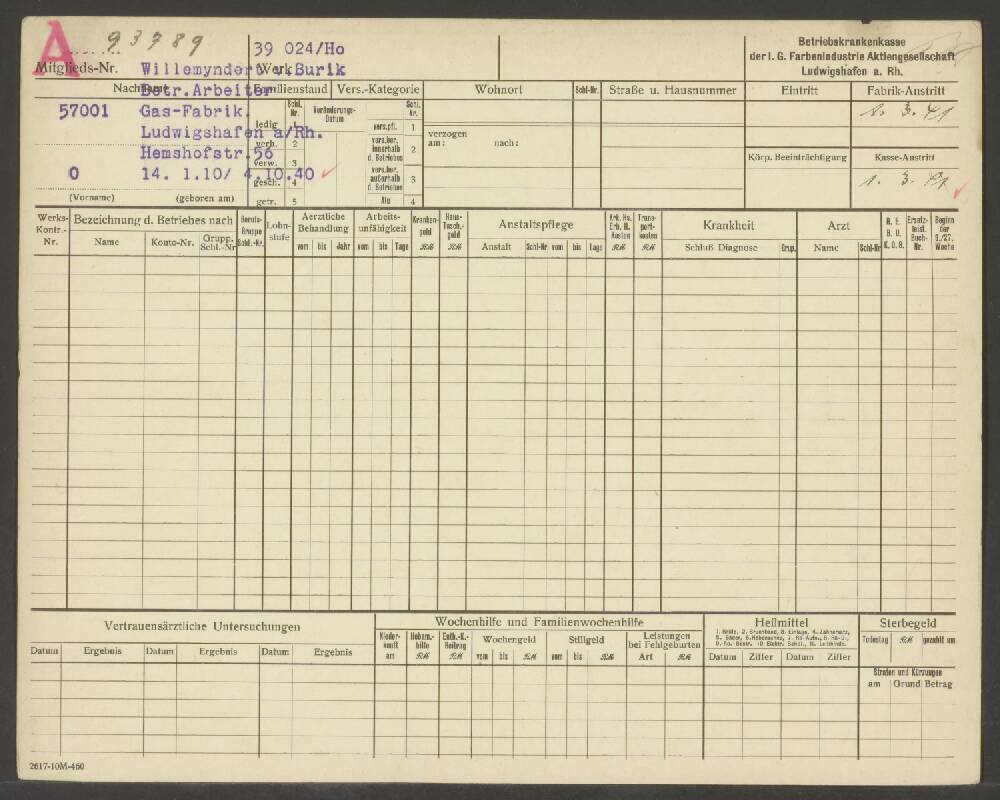 A
93789
39 024/Ho
Betriebskrankenkasse
der I. G. Farbenindustrie Aktiengesellschaft
Ludwigshafen a. Rh.
Mitglieds-Nr. Willemyndert v.Burik Werk
Nachname Betr.Arbeiter Familienstand Vers.-Kategorie Wohnort Schl-Nr. Straße u. Hausnummer Eintritt Fabrik-Austritt
57001 Gas-Fabrik.
Schl. Nr. Veränderungs-Datum Schl. Nr.
1. 3. 41
ledig 1 vers.pfl. 1
Ludwigshafen a/Rh.
verzogen
am: nach:
verh. 2 vers.ber. innerhalb d. Betriebes 2
Hemshofstr.56
verw. 3
Körp. Beeinträchtigung Kasse-Austritt
0 14. 1.10/ 4.10.40
gesch. 4 vers.ber. außerhalb d. Betriebes 3
1. 3. 41
(Vorname) (geboren am) getr. 5 Alu 4
Werks-Kontr.-Nr. Bezeichnung d. Betriebes nach Berufs-Gruppe Schl.-Nr. Lohn-stufe Aerztliche Behandlung Arbeits-unfähigkeit Kranken-geld RM Haus-Tasch.-geld RM Anstaltspflege Krk. Hs. Erh. H. Kosten RM Trans-port-kosten RM Krankheit Arzt Ersatz-leist. Buch-Nr. Beginn der 9./27. Woche
Name Konto-Nr. Grupp. Schl.-Nr. vom bis Jahr vom bis Tage Anstalt Schl-Nr vom bis Tage Schluß Diagnose Grup. Name Schl-Nr K.D.B.
Vertrauensärztliche Untersuchungen
Wochenhilfe und Familienwochenhilfe
Heilmittel
Sterbegeld
Datum Ergebnis Datum Ergebnis Datum Ergebnis
Nieder-kunft am Hebam.-hilfe RM Entb.-K.-Beitrag RM Wochengeld vom bis RM Stillgeld vom bis RM Leistungen bei Fehlgeburten Art RM
Datum Ziffer Datum Ziffer
Todestag RM gezahlt am
Strafen und Kürzungen
am Grund Betrag
2617-10M-460